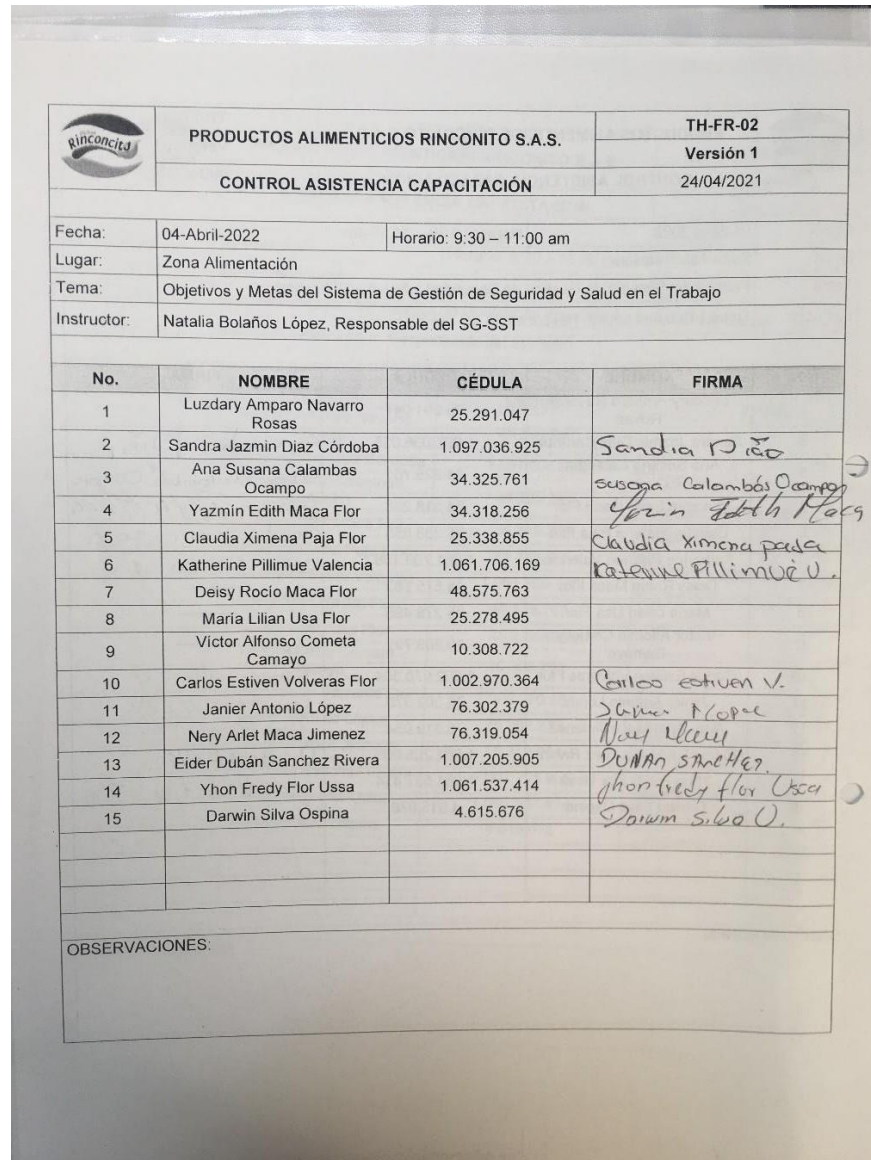 Rinconcito
PRODUCTOS ALIMENTICIOS RINCONITO S.A.S.
TH-FR-02
Versión 1
CONTROL ASISTENCIA CAPACITACIÓN
24/04/2021
Fecha: 04-Abril-2022 Horario: 9:30 – 11:00 am
Lugar: Zona Alimentación
Tema: Objetivos y Metas del Sistema de Gestión de Seguridad y Salud en el Trabajo
Instructor: Natalia Bolaños López, Responsable del SG-SST
No. NOMBRE CÉDULA FIRMA
1 Luzdary Amparo Navarro Rosas 25.291.047
2 Sandra Jazmin Diaz Córdoba 1.097.036.925 Sandra
3 Ana Susana Calambas Ocampo 34.325.761 susana Calambás Ocampo
4 Yazmín Edith Maca Flor 34.318.256 Edith Maca
5 Claudia Ximena Paja Flor 25.338.855 Claudia Ximena paja
6 Katherine Pillimue Valencia 1.061.706.169 Katerine Pillimué V.
7 Deisy Rocío Maca Flor 48.575.763
8 María Lilian Usa Flor 25.278.495
9 Víctor Alfonso Cometa Camayo 10.308.722
10 Carlos Estiven Volveras Flor 1.002.970.364 Carlos estiven V.
11 Janier Antonio López 76.302.379
12 Nery Arlet Maca Jimenez 76.319.054
13 Eider Dubán Sanchez Rivera 1.007.205.905 DUNAN SANCHEZ.
14 Yhon Fredy Flor Ussa 1.061.537.414 jhon fredy flor Ussa
15 Darwin Silva Ospina 4.615.676 Darwin Silva O.
OBSERVACIONES: